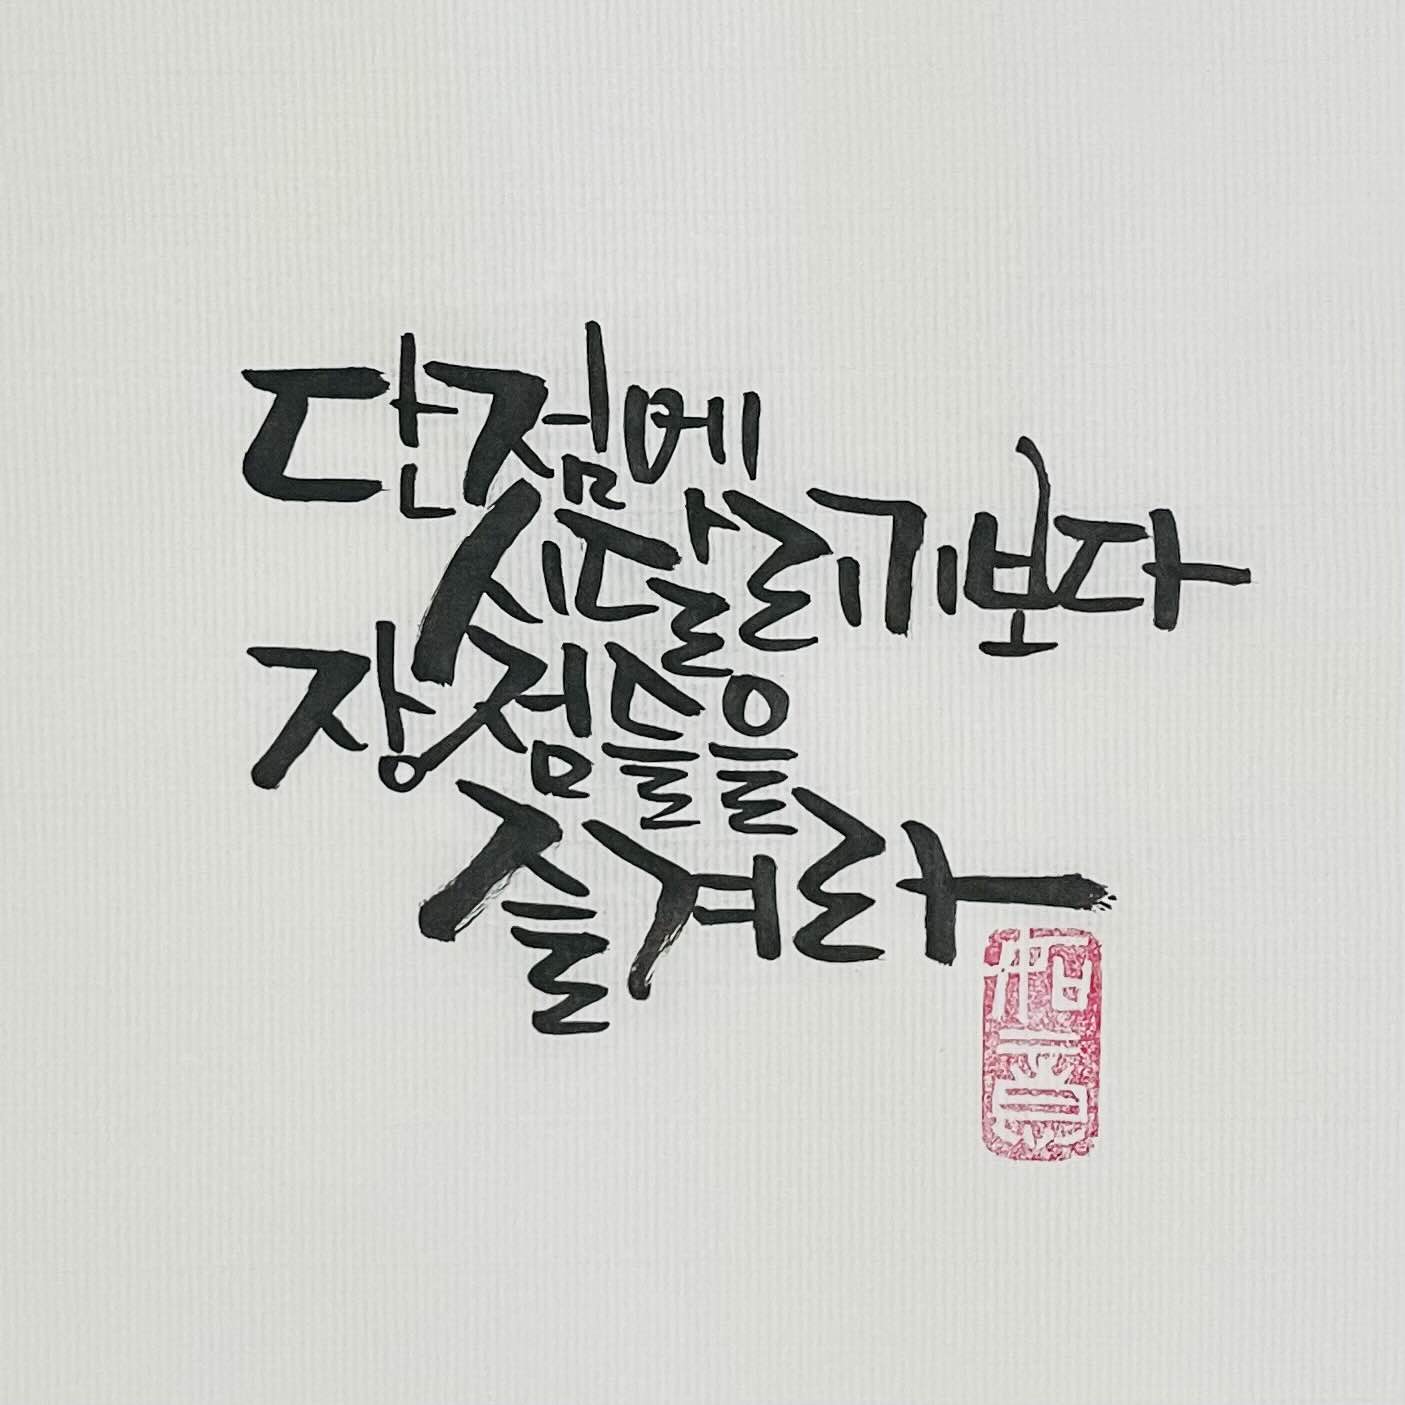 단점에
시달리기보다
장점들을
즐겨라